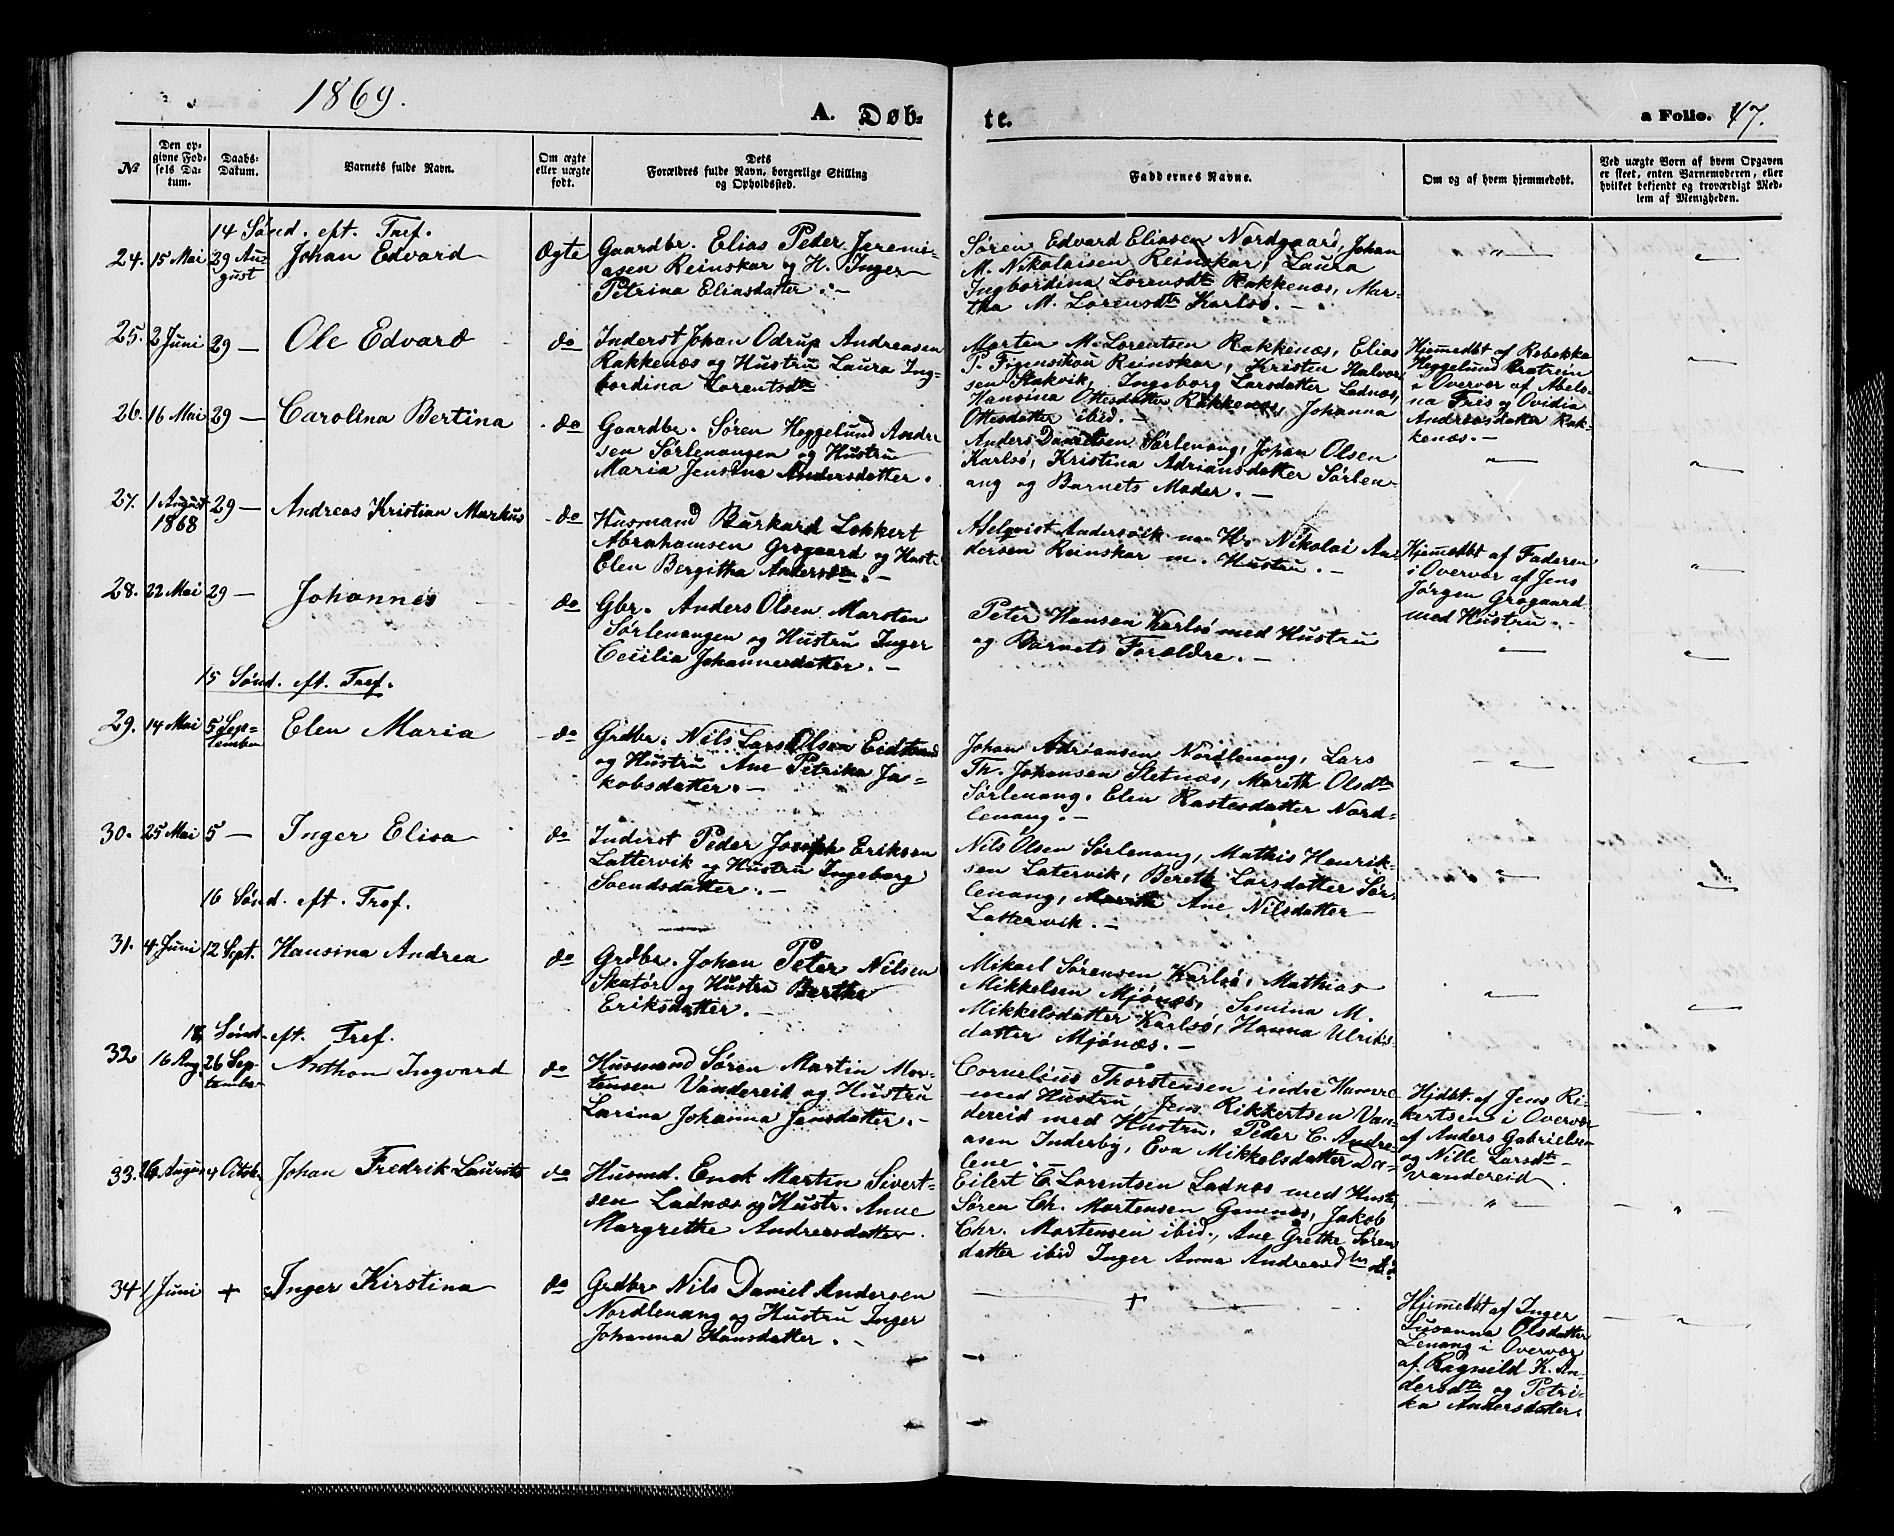 1869.
A. Døb-
te.
a Folio. 47.
No
Den op-
givne Fød-
sels Da-
tum.
Daabs-
Datum.
Barnets fulde Navn.
Om ægte
eller uægte
født.
Dets
Forældres fulde Navn, borgerlige Stilling
og Opholdssted.
Faddernes Navne.
Om og af hvem hjemmedøbt.
Ved uægte Børn af hvem Opgaven
er skeet, enten Barnemoderen, eller
hvilket bekjendt og troværdigt Med-
lem af Menigheden.
14 Sønd. eft. Tref.
24. 15 Mai 29 Au-
gust
Johan Edvard
Ægte
Gaardbr. Elias Peder Jeremi-
asen Reinskar og H. Inger
Petrina Eliasdatter. -
Søren Edvard Eliasen Nordgaard, Johan
M. Nikolaisen Reinskar, Laura
Ingbordina Lorensdtr Rakkenæs, Mar-
tha M. Lorensdtr Karlsø. -
25. 2 Juni 29 -
Ole Edvard
do
Inderst Johan Odrup Andreasen
Rakkenæs og Hustru Laura Ing-
bordina Lorentsdtr
Morten M. Lorentsen Rakkenæs, Elias
P. Reinskar, Kristen Halvor-
sen Stakvik, Ingeborg Larsdatter Ladnæs,
Hansina Ottesdatter Rakkenæs, Johanna
Ottesdatter ibid. -
Hjemmedbt af Rebekka
Heggelund
i Overvær af Abels-
na Friis og Ovidia
Andreasdatter Rak-
kenæs. -
26. 16 Mai 29 -
Carolina Bertina
do
Gaardbr. Søren Heggelund Andre
sen Sørlenangen og Hustru
Maria Jensina Andersdatter.
Anders Danielsen Sørlenang, Johan Olsen
Karlsø, Kristina Adriansdatter Sørlen-
ang og Barnets Moder. -
27. 1 August
1868 29 -
Andreas Kristian Markus
do
Husmand Burkard Lokkert
Abrahamsen Grogaard og Hust.
Elen Bergitha Andersdtr. -
H. Nikolai An-
dersen Reinskar m. Hustru. -
Hjemmedbt af Faderen
i Overvær af Jens
Jørgen Grogaard
med Hustru. -
28. 22 Mai 29 -
Johannes
do
Gbr. Anders Olsen Marsten
Sørlenangen og Hustru Inger
Cecilia Johannesdatter. -
Peter Hansen Karlsø med Hustru
og Barnets Forældre. -
15 Sønd. eft. Tref.
29. 14 Mai 5 Sep-
tember
Elen Maria
do
Grdbr. Nils Lars Olsen Eidstrand
og Hustru Ane Petrika Ja-
kobsdatter. -
Johan Adriansen Nordlenang, Lars
Th. Johansen Sletnæs, Marith Olsdtr
Sørlenang, Elen Rastesdatter Nord-
lenang. -
30. 25 Mai 5 -
Inger Elisa
do
Inderst Peder Joseph Eriksen
Lattervik og Hustru Ingeborg
Svendsdatter. -
Nils Olsen Sørlenang, Mathis Henrik-
sen Latervik, Bereth Larsdatter Sør-
lenang, Ane Nilsdatter
Lattervik. -
16 Sønd. eft. Tref.
31. 4 Juni 12 Sept.
Hansina Andrea
do
Grdbr. Johan Peter Nilsen
Skatør og Hustru Berthe
Eriksdatter. -
Mikael Sørensen Karlsø, Mathias
Mikkelsen Mjønæs, Simina M.
Mikkelsdatter Karlsø, Hanna Ulriks-
datter Mjønæs. -
18 Sønd. eft. Tref.
32. 16 Aug. 26 Sep-
tember
Anthon Ingvard
do
Husmand Søren Martin Mor-
tensen Vandereid og Hustru
Larina Johanna Jensdatter. -
Cornelius Thorstensen indre Hamre
med Hustru, Jens Rikkertsen Van-
dereid med Hustru, Peder C. Andre-
asen Inderby, Eva Mikkelsdatter Da-
lene. -
Hjdbt. af Jens Ri-
kertsen i Overvær
af Anders Gabrielsen
og Nille Larsdtr
Vandereid
33. August Octob.
Johan Fredrik Laurits
do
Husmd. Enok Martin Sivert-
sen Ladnæs og Hustr. Anne
Margrethe Andreasdatter.
Eilert C. Lorentsen Ladnæs med Hust.
Søren Chr. Mortensen Gamnæs, Jakob
Chr. Mortensen ibid., Ane Grethe Søren
datter ibid Inger Anna Andreasdtr
34 1 Juni +
Inger Kirstina
do
Grdbr Nils Daniel Andersen
Nordlenang og Hustru Inger
Johanna Hansdatter. -
+
Hjemmedbt af Inger
Susanna Olsdatter
Lenang i Overvær
af Ragnild K. An-
dersdtr og Petri-
ka Andersdatter.